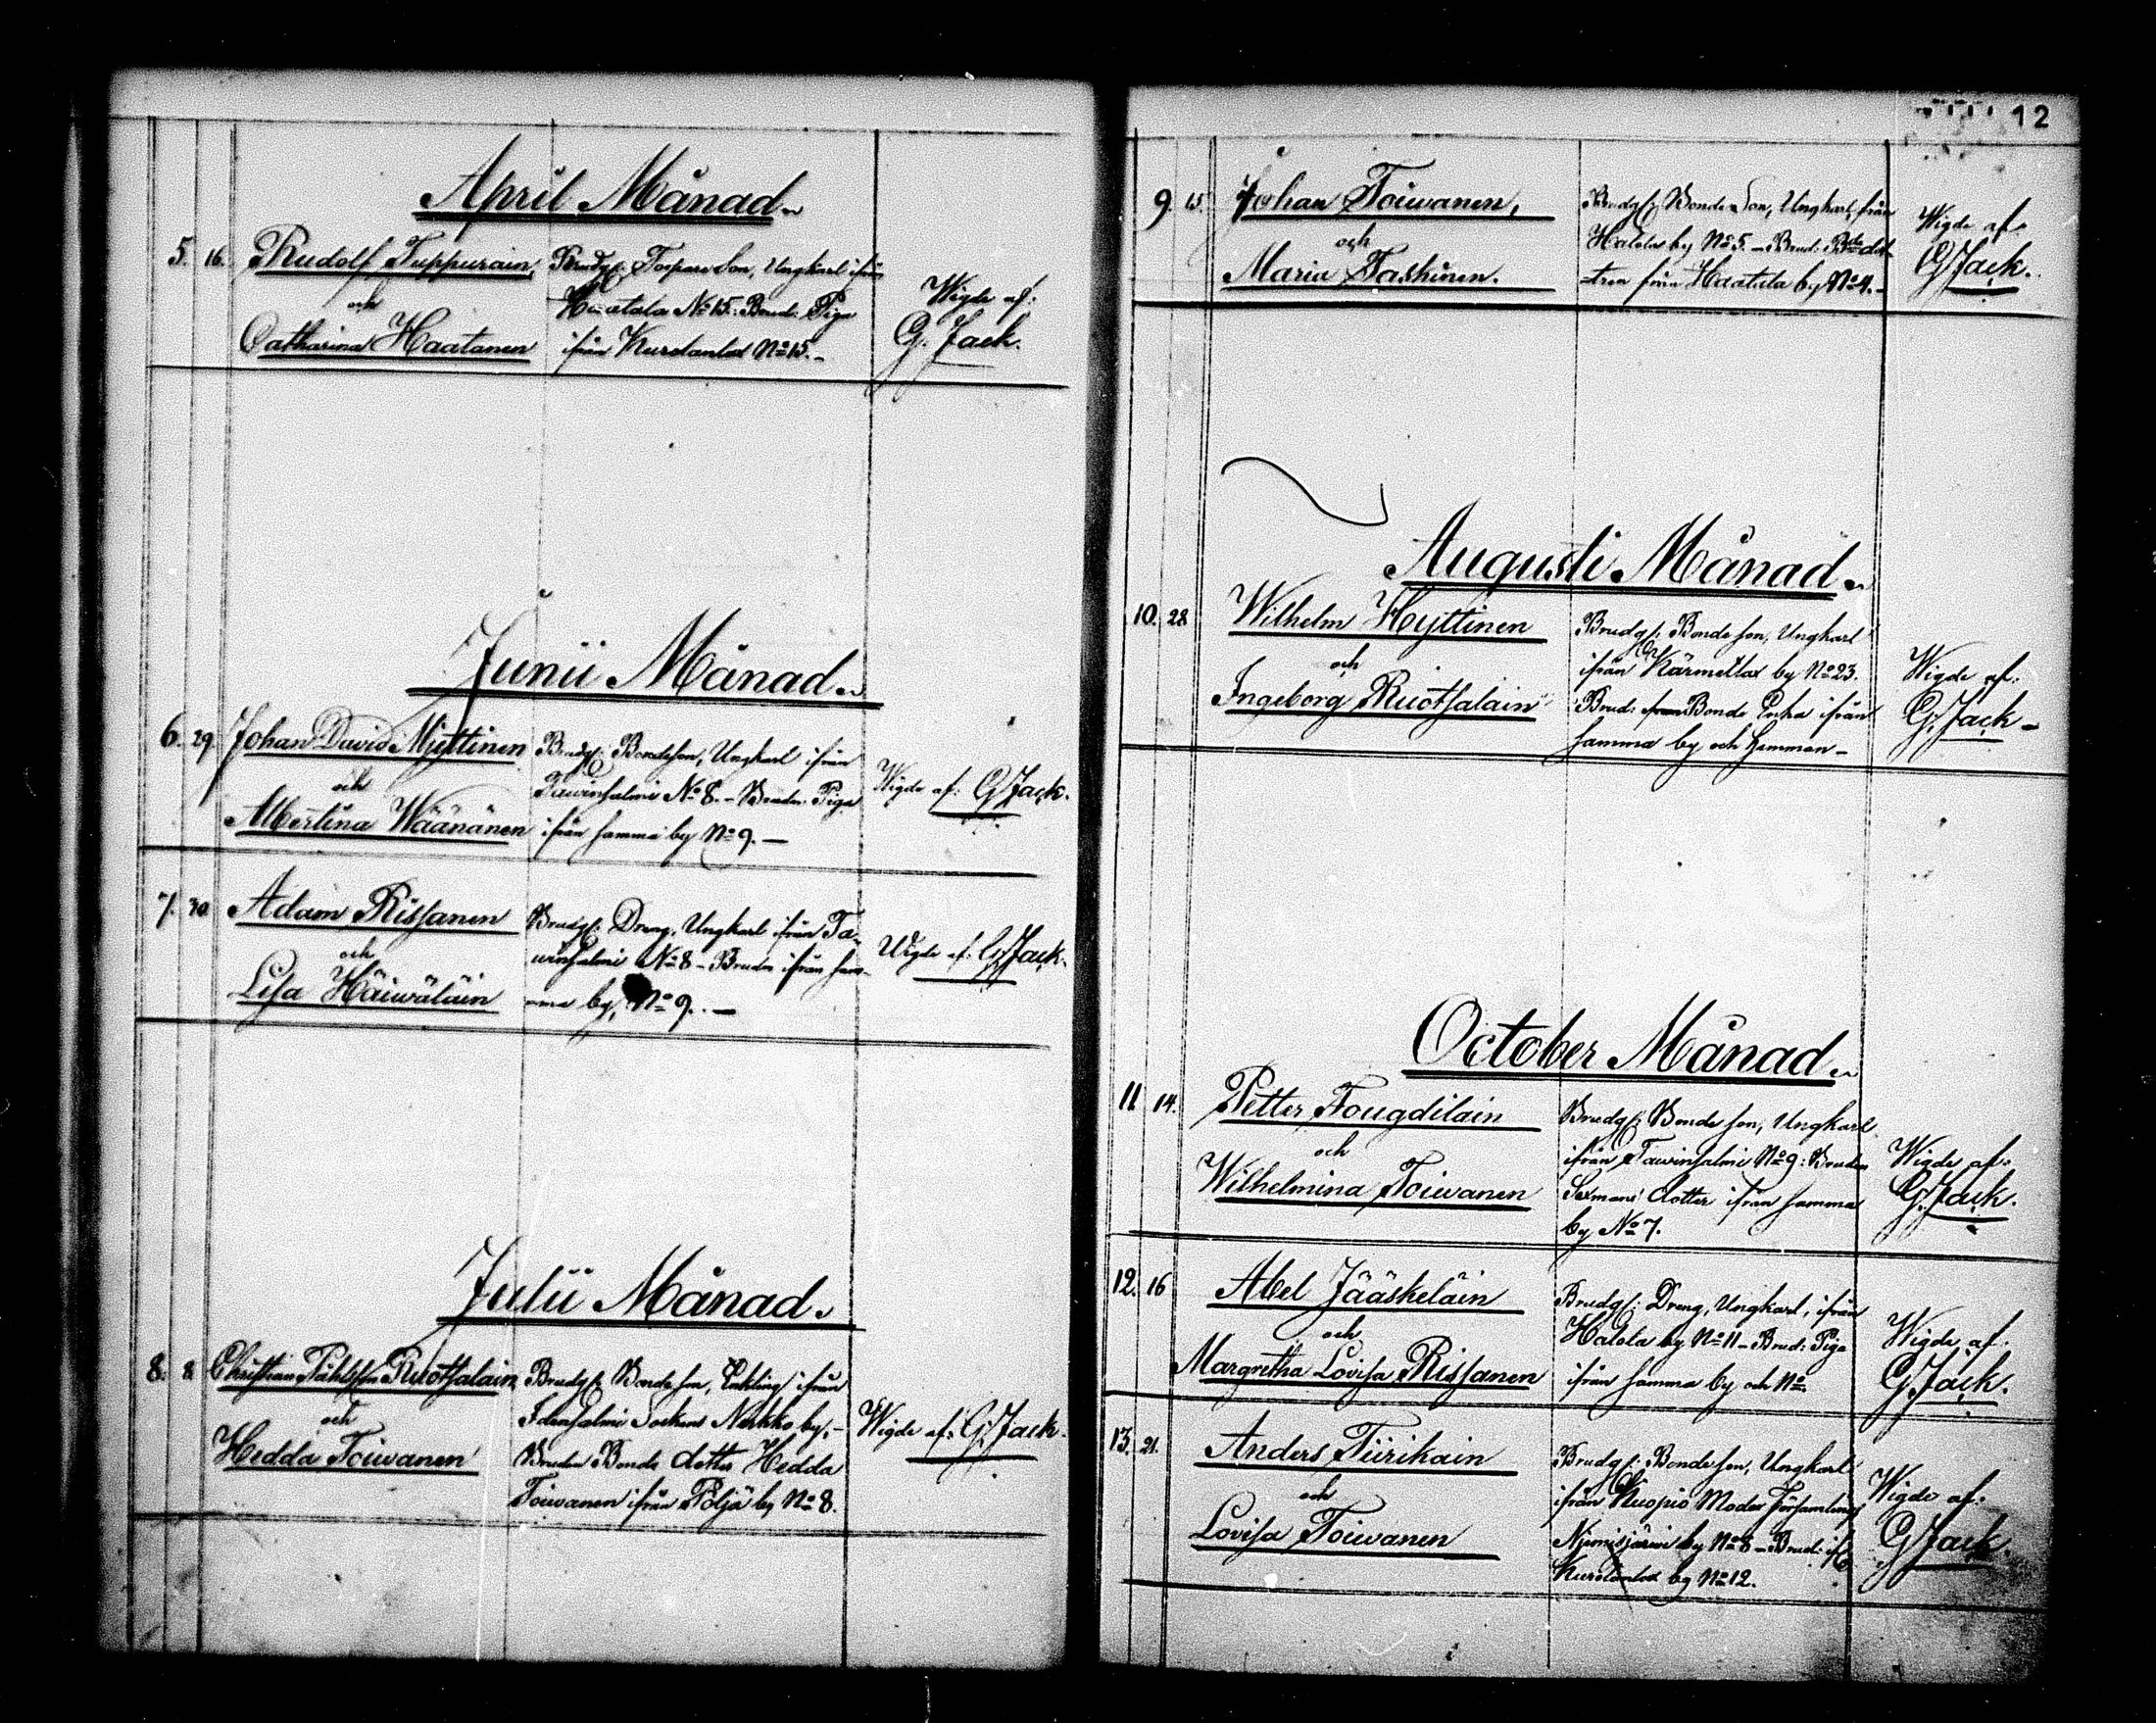 April Månad.
5. 16. Rudolf Tuppurain,
och
Catharina Haatanen
Brudg: Torpare Son, Ungkarl ifrån
Haatala No 15. Brud: Piga
ifrån Kurolanlax No 15.-
Wigde af:
G. Jack.
Junii Månad.
6. 29. Johan David Myttinen
och
Albertina Wäänänen
Brudg: Bondeson, Ungkarl ifrån
Tawinsalmi No 8. - Bruden Piga
ifrån samma by No 9. -
Wigde af: G Jack.
7. 30. Adam Rissanen
och
Lisa Häiwäläin
Brudg: Dreng, Ungkarl ifrån Ta-
winsalmi No 8 - Bruden ifrån sam-
ma by, No 9. -
Wigde af: G Jack.
Julii Månad.
8. 8 Christian Påhlsson Ruotsalain
och
Hedda Toiwanen
Brudg: Bondeson, Enkling ifrån
Idensalmi Sockens Nerkko by. -
Bruden Bonde dotter Hedda
Toiwanen ifrån Pöljä by No 8.
Wigde af: G. Jack.
12
9. 15. Johan Toiwanen,
och
Maria Taskinen.
Brudg: Bonde Son, Ungkarl, från
Halola by No 5. - Brud: Bde dot-
tren från Haatala by No 4. -
Wigde af:
G Jack.
Augusti Månad.
10. 28 Wilhelm Hyttinen
och
Ingeborg Ruotsalain
Brudg: Bonde son, Ungkarl
ifrån Kärmellax by No 23.
Brud: Bonde Enka ifrån
samma by och Hemman -
Wigde af:
G. Jack -
October Månad.
11 14. Petter Fougdilain
och
Wilhelmina Toiwanen
Brudg: Bonde son, Ungkarl
ifrån Tawinsalmi No 9: Bruden
Sexmans dotter ifrån samma
by No 7.
Wigde af:
G. Jack.
12. 16 Abel Jääskeläin
och
Margretha Lovisa Rissanen
Brudg: Dreng, Ungkarl, ifrån
Halola by No 11 - Brud: Piga
ifrån samma by och No
Wigde af:
G. Jack.
13. 21. Anders Tiirikain
och
Lovisa Toiwanen
Brudg: Bonde son, Ungkarl
ifrån Kuopio Moder Församlings
by No 8 - Brud: ifr
Kurolanlax by No 12.
Wigde af:
G Jack